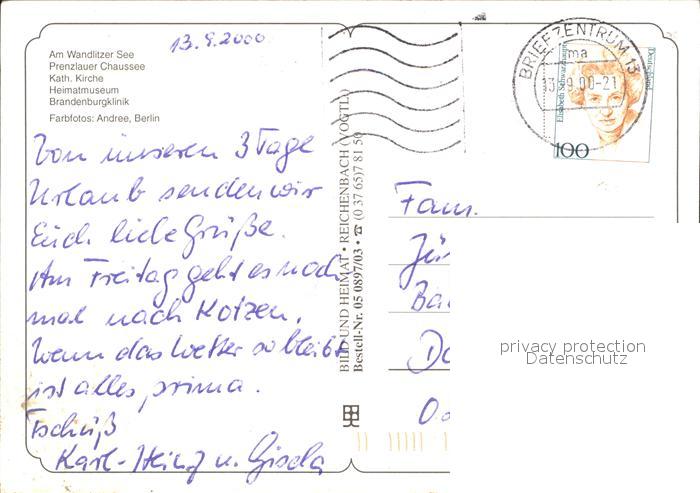 13.9.2000
Am Wandlitzer See
Prenzlauer Chaussee
Kath. Kirche
Heimatmuseum
Brandenburgklinik
Farbfotos: Andree, Berlin
Von unseren 3 Tage
Urlaub senden wir
Euch liebe Grüße.
Am Freitag geht es noch
mal nach Kotzen.
Wenn das Wetter so bleibt
ist alles prima.
Tschüß
Karl-Heinz u. Gisela
BILD UND HEIMAT • REICHENBACH (VOGTL)
Bestell-Nr. 05 0897/03 • ☎ (0 37 65) 7 81 50
BRIEFZENTRUM 13
ma
13.9.00-21
Elisabeth Schwarzhaupt
Deutschland
100
Fam.
Jür
Ba
privacy protection
Datenschutz